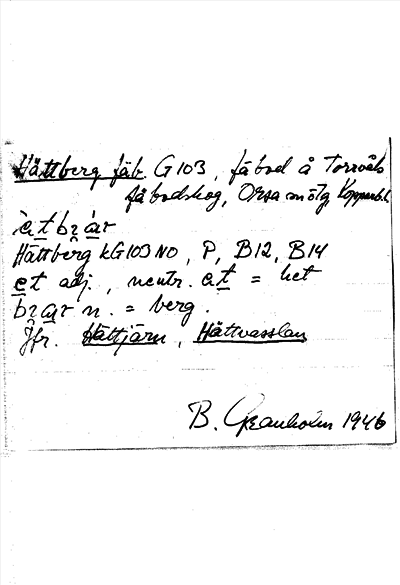 Hättberg fäb. G103, fäbod å Torrvåls
fäbodskog, Orsa mötg Kopparb.l.
Hättberg kG103 NO, P, B12, B14
et adj., neutr. et = het
n. = berg.
Jfr. Hättjärn, Hättvasslan
B. Granholm 1946